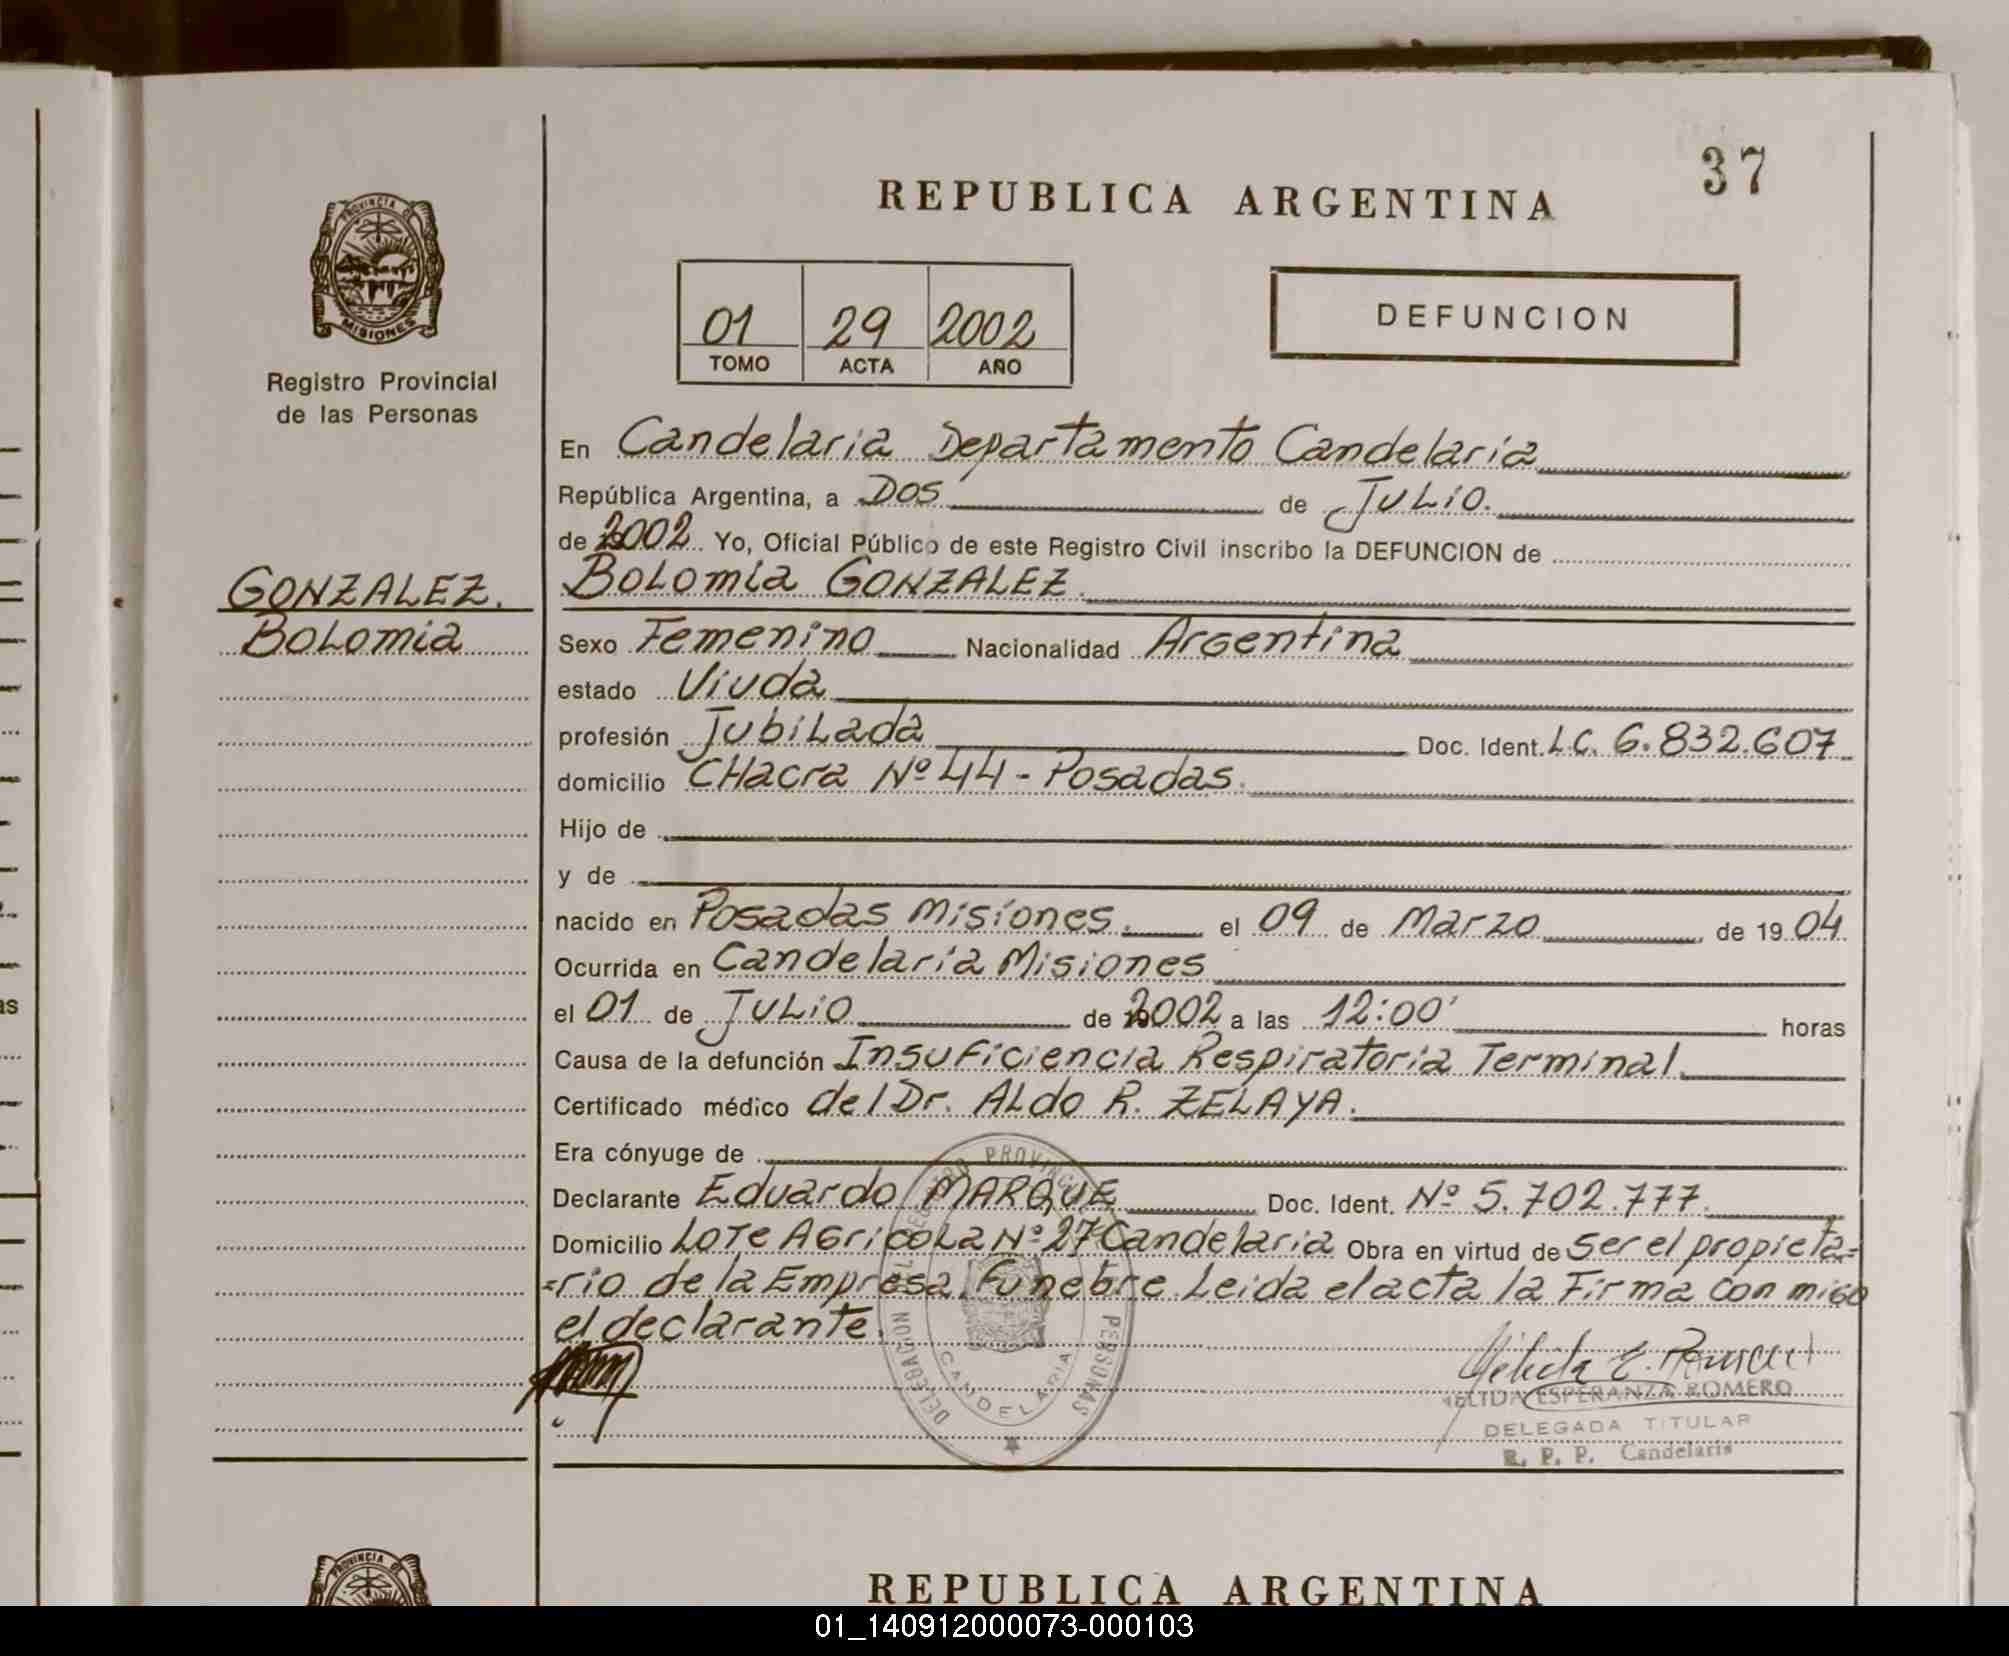 37
REPUBLICA ARGENTINA
PROVINCIA DE
MISIONES
Registro Provincial
de las Personas
01 29 2002
TOMO ACTA AÑO
DEFUNCION
En Candelaria Departamento Candelaria
República Argentina, a DOS de JULiO.
de 2002 Yo, Oficial Público de este Registro Civil inscribo la DEFUNCION de
GONZALEZ.
BOLOMIA GONZALEZ.
BOLOMIA
Sexo Femenino Nacionalidad Argentina
estado Viuda
profesión JubiLada Doc. Ident. L.C. 6.832.607
domicilio CHacra Nº 44 - Posadas.
Hijo de
y de
nacido en Posadas Misiones. el 09 de Marzo de 1904
Ocurrida en Candelaria Misiones
el 01 de JULiO de 2002 a las 12:00' horas
Causa de la defunción Insuficiencia Respiratoria Terminal.
Certificado médico del Dr. ALdo R. ZELAYA.
Era cónyuge de
Declarante Eduardo MARQUE Doc. Ident. Nº 5.702.777.
Domicilio Lote Agricola Nº 27 Candelaria Obra en virtud de ser el propieta=
=rio de la Empresa Funebre Leida el acta la Firma con migo
el declarante.
CANDELARIA
ESPERANZA ROMERO
DELEGADA TITULAR
R. P. P. Candelaria
PROVINCIA DE
REPUBLICA ARGENTINA
01_140912000073-000103